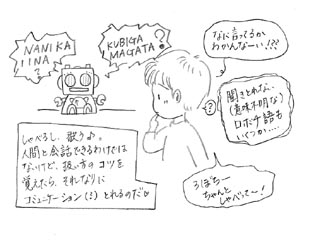 NANIKA
IINA
?
KUBIGA
MAGATA
?
なに言ってるか
わかんなーい!??
?
聞きとれない
(意味不明な)
ロボチ語も
いくつか……
しゃべるし、歌う♪。
人間と会話できるわけでは
ないけど、扱い方のコツを
覚えたら、それなりに
コミュニケーション(!)とれるのだ
ろぼちー
ちゃんと
しゃべってー!